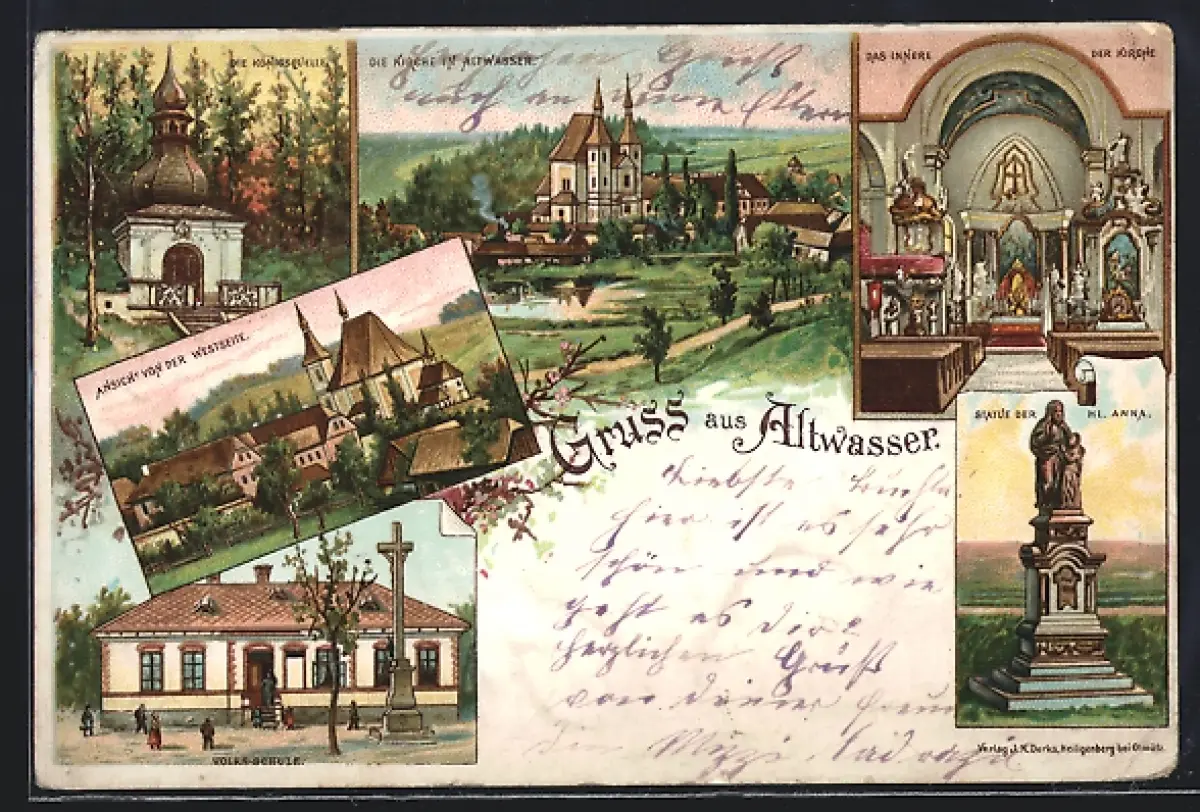 DIE KÖNIGSQUELLE
DIE KIRCHE IN ALTWASSER.
DAS INNERE DER KIRCHE
Herzlichen Gruß
auch an Deine Eltern
ANSICHT VON DER WESTSEITE.
STATUE DER HL. ANNA.
Gruss aus Altwasser.
Liebste
hier ist es sehr
schön und wie
geht es dir?
herzlichen Gruß
von deiner
Mizzi
VOLKS-SCHULE.
Verlag J. K. Derka, Heiligenberg bei Olmütz.